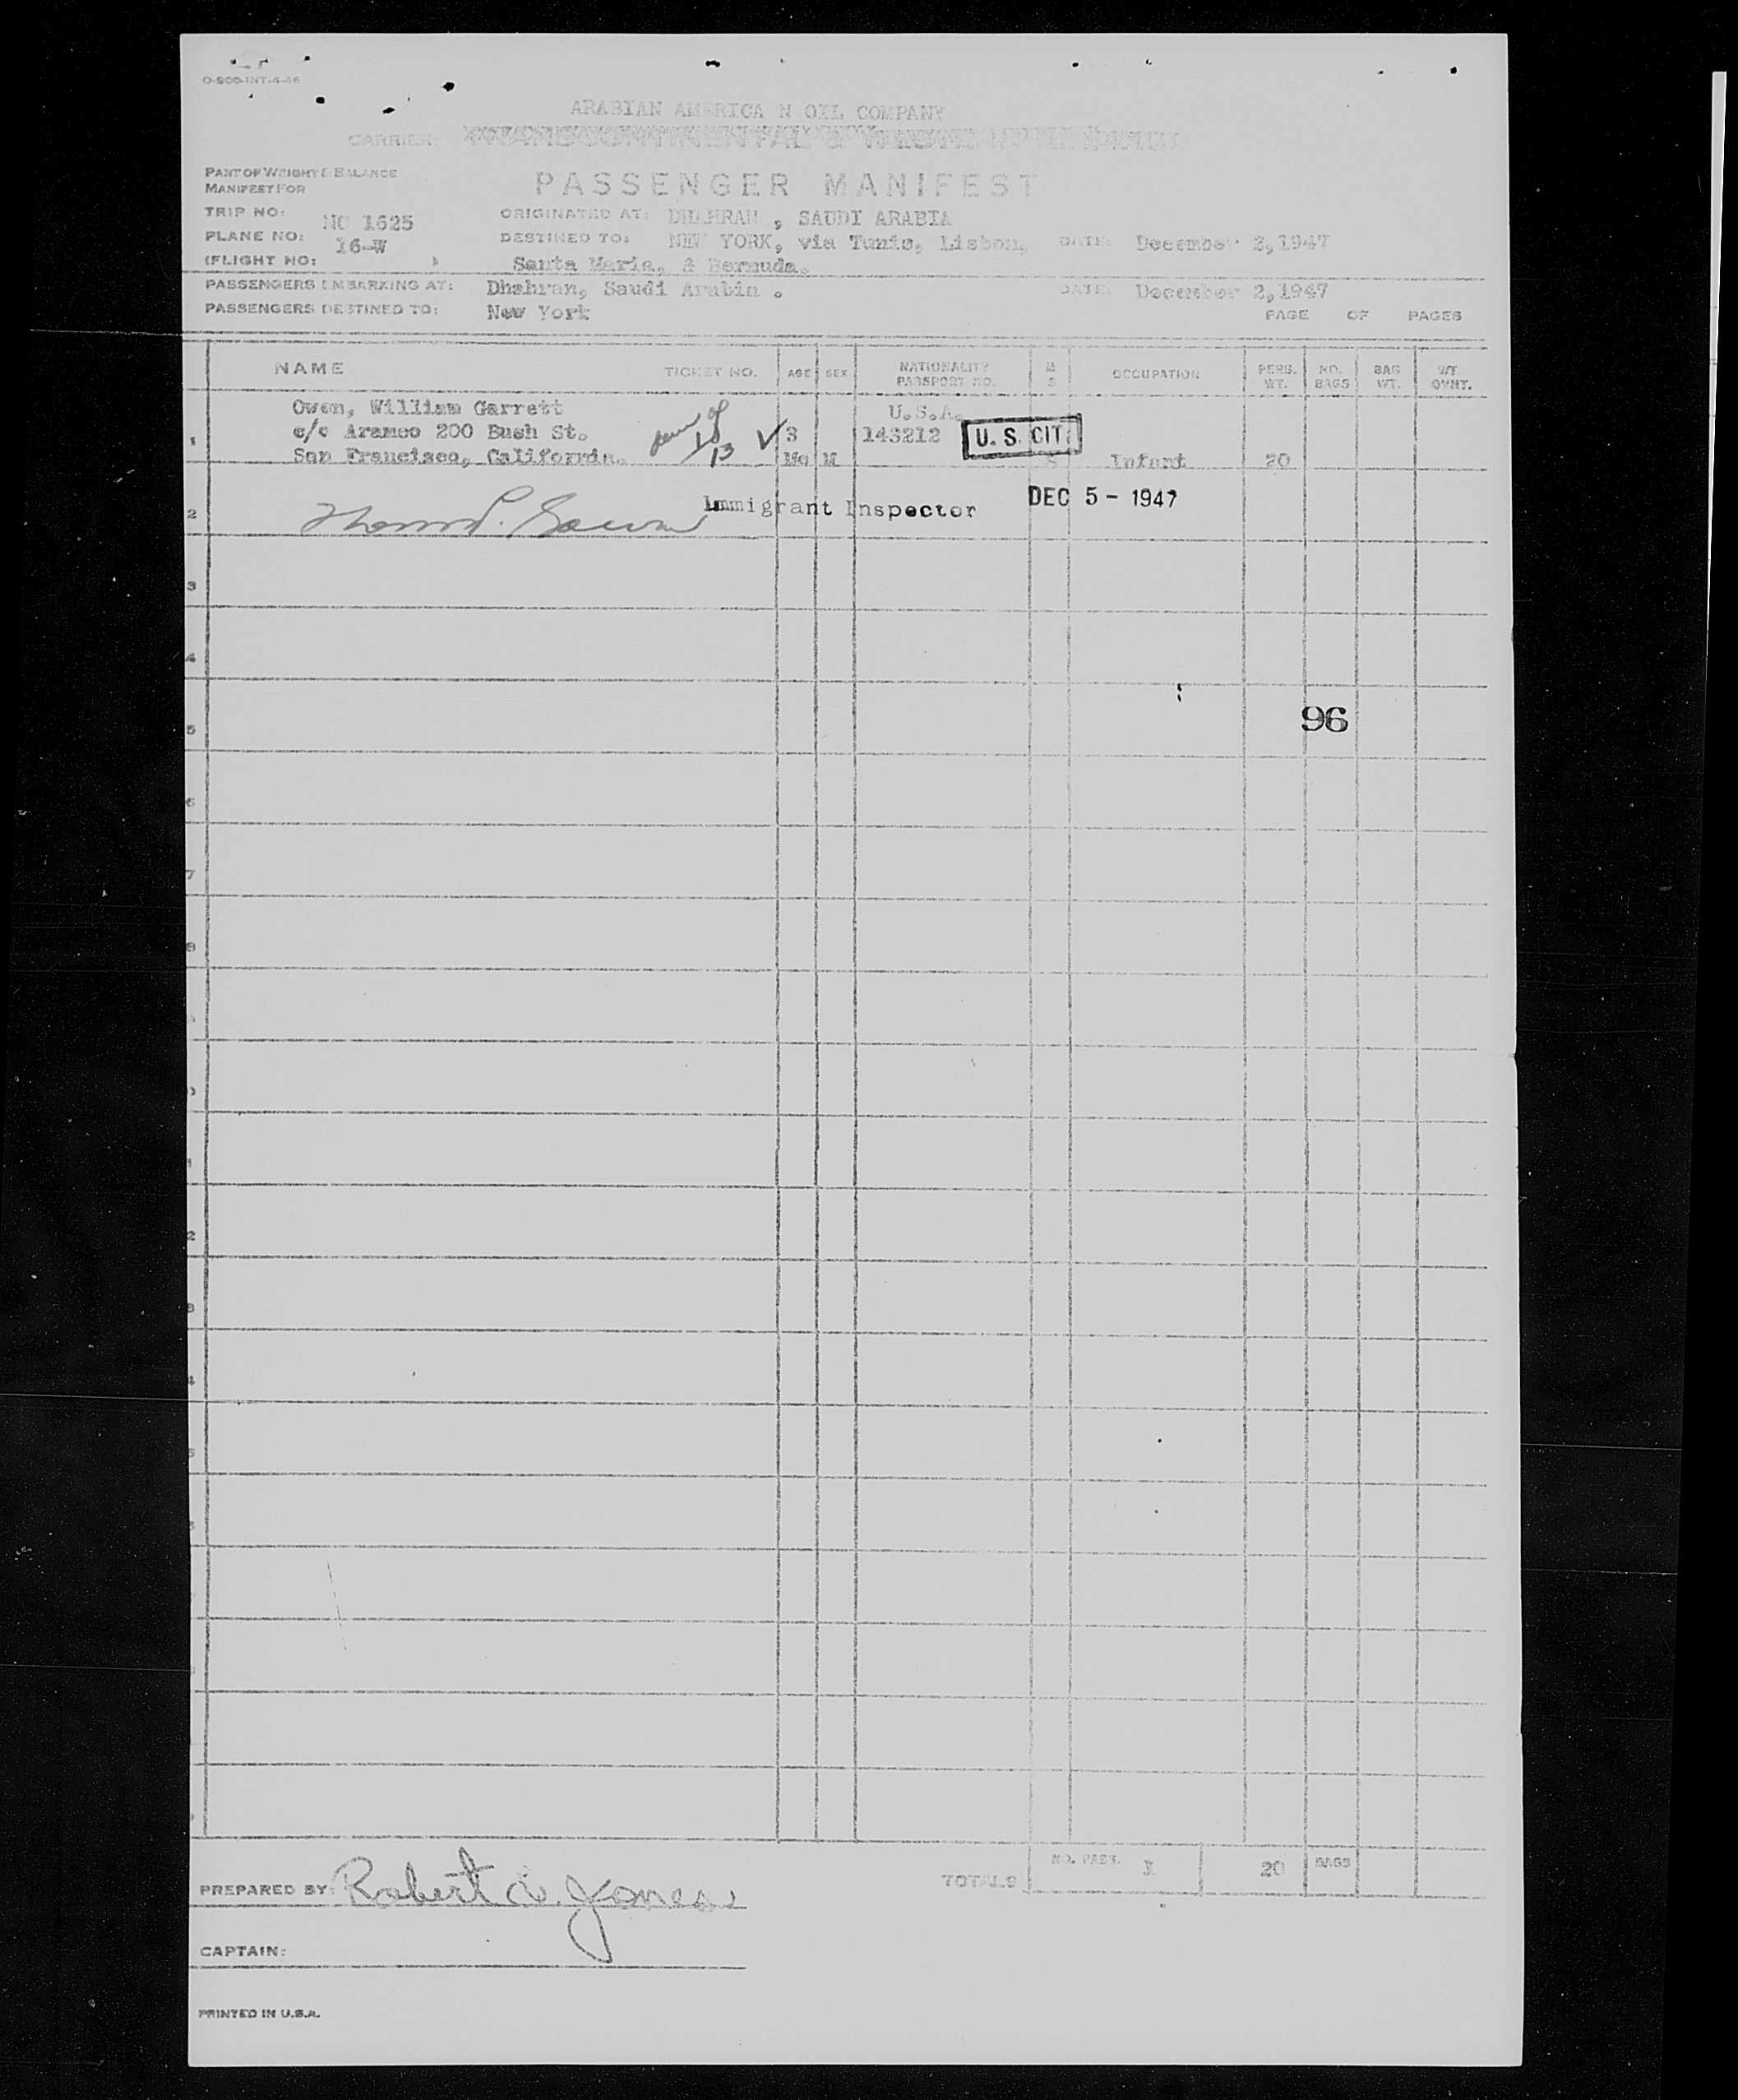 O-800-INT-4-46
ARABIAN AMERICA N OIL COMPANY
CARRIER:
PART OF WEIGHT & BALANCE
MANIFEST FOR
PASSENGER MANIFEST
TRIP NO: NC 1625 ORIGINATED AT: DHAHRAN , SAUDI ARABIA
PLANE NO: 16-W DESTINED TO: NEW YORK, via Tunis, Lisbon, DATE: December 2,1947
(FLIGHT NO: ) Santa Maria, & Bermuda.
PASSENGERS EMBARKING AT: Dhahran, Saudi Arabia . DATE: December 2,1947
PASSENGERS DESTINED TO: New York PAGE OF PAGES
NAME TICKET NO. AGE SEX NATIONALITY PASSPORT NO. M S OCCUPATION PERS. WT. NO. BAGS BAG WT. WT. OVHT.
Owen, William Garrett U.S.A.
1 c/o Aramco 200 Bush St. 3 143212 U. S. CIT.
San Francisco, California. Mo M S Infant 20
2 Immigrant Inspector DEC 5 - 1947
3
4
5 96
6
7
8
2
3
4
5
PREPARED BY: Robert A. Jones TOTALS NO. PAS'R. 1 20 BAGS
CAPTAIN:
PRINTED IN U.S.A.